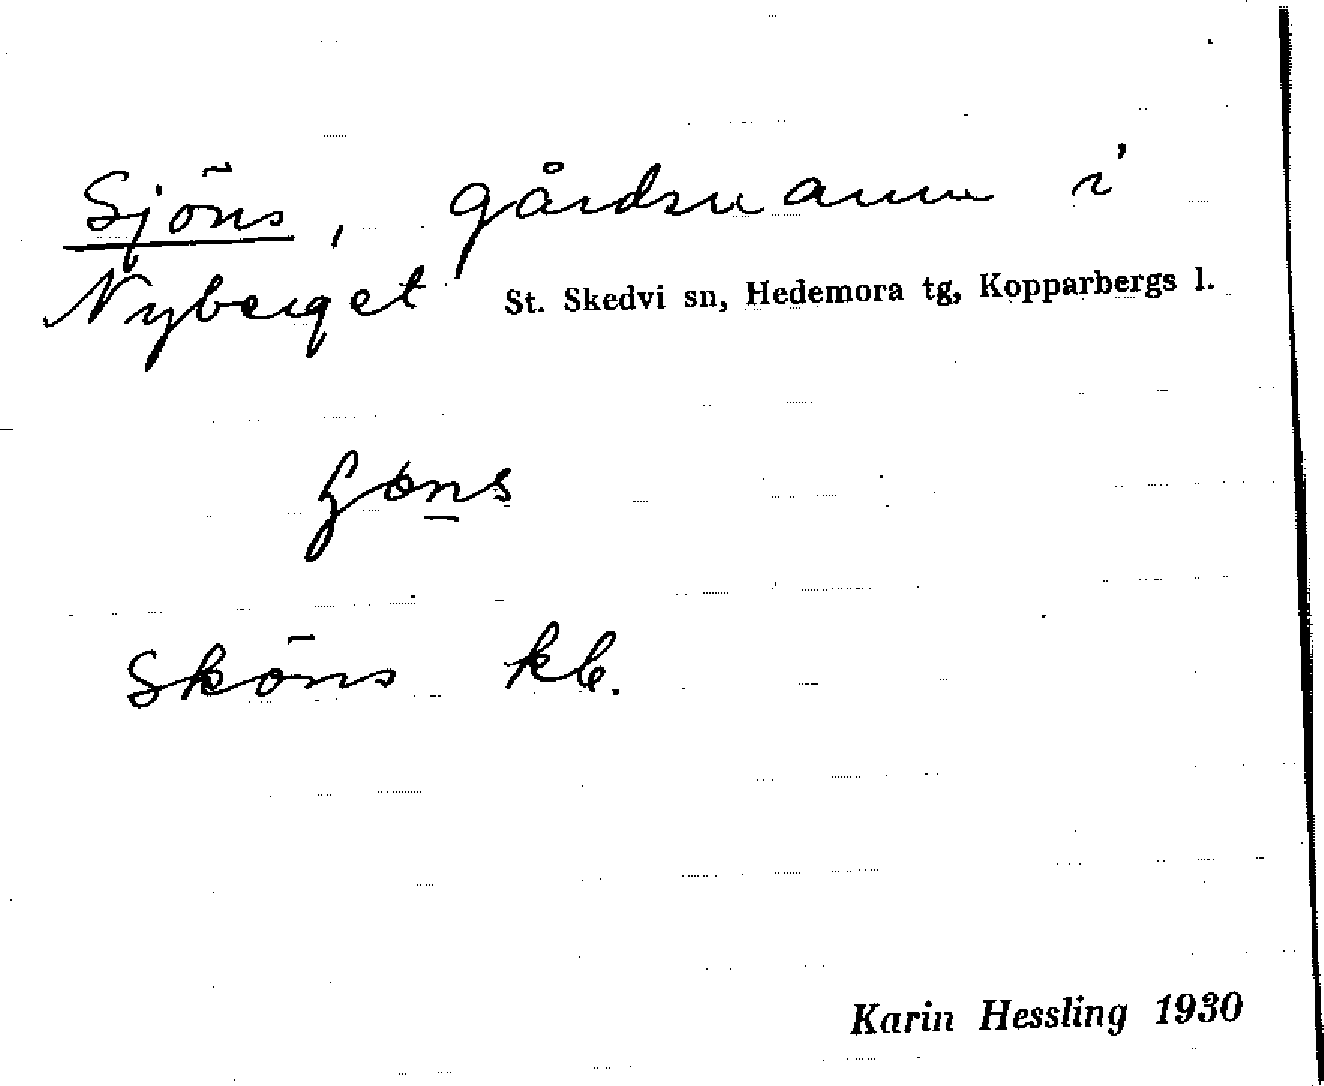 Sjöns, gårdsnamn i
Nyberget St. Skedvi sn, Hedemora tg, Kopparbergs l.
Sköns kb.
Karin Hessling 1930